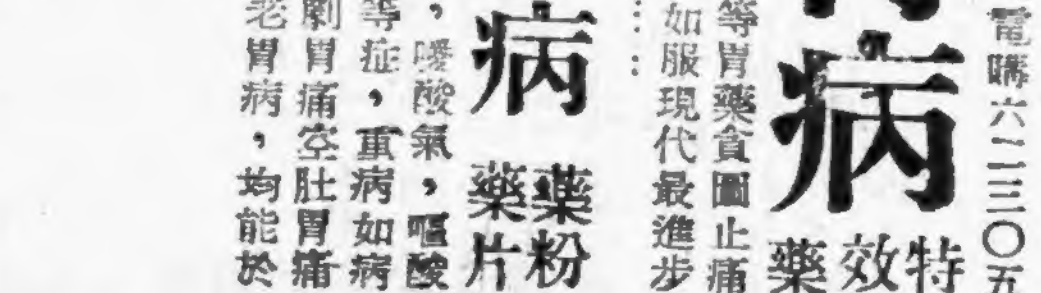 電購六二三〇五
病
特效藥
等胃藥貪圖止痛
如服現代最進步
病
藥粉
藥片
，噯酸氣，嘔酸
等症，重病如病
劇胃痛空肚胃痛
老胃病，均能於